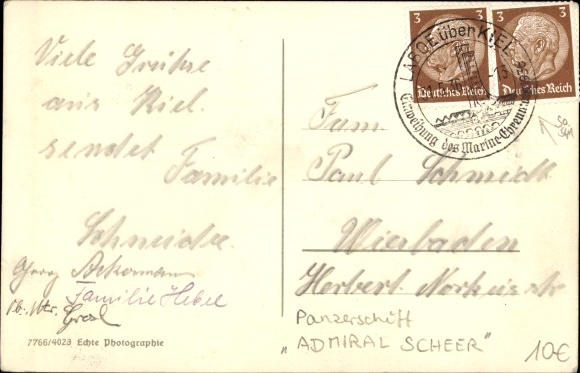 Viele Grüße
aus Kiel.
sendet
Familie
Schneider
Georg Ackermann
Familie Hebel
Ob. Mtr.
7766/4023 Echte Photographie
3 3
Deutsches Reich Deutsches Reich
LABOE über KIEL
Einweihung des Marine-Ehrenmals
Fam.
Paul Schmidt
Wiesbaden
Herbert Norkus str
Panzerschiff
„ADMIRAL SCHEER"
10€